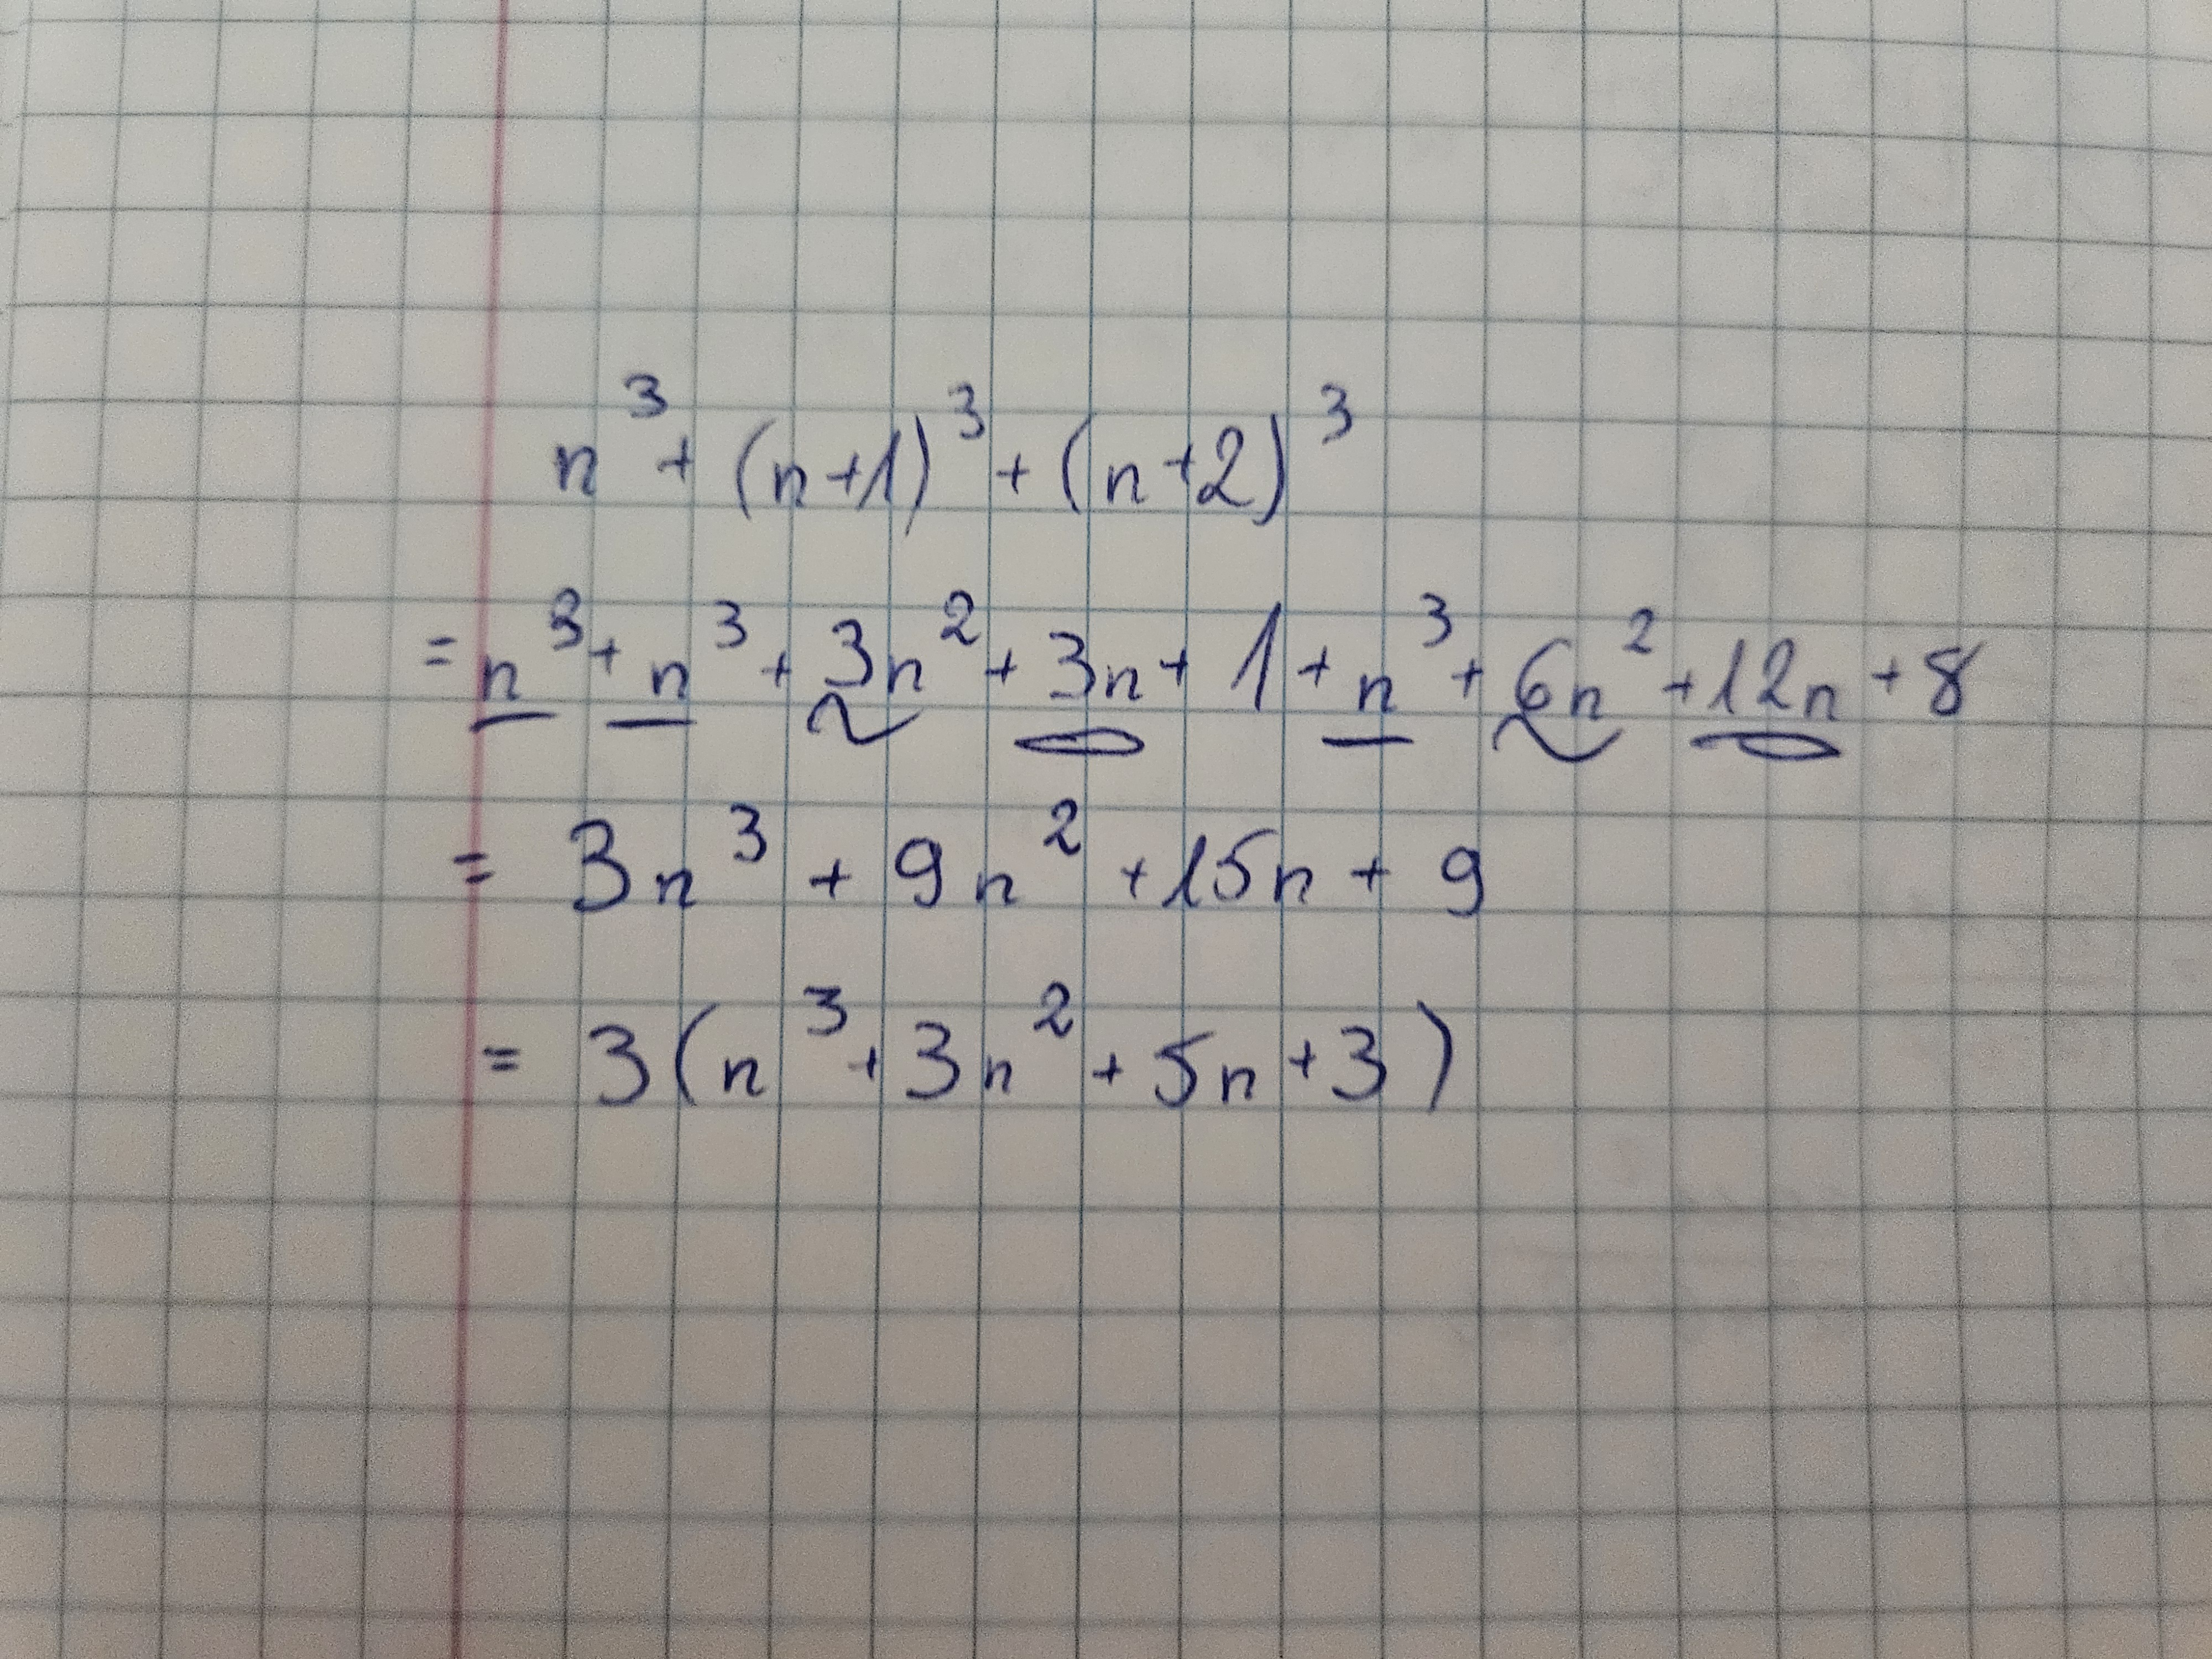 n³ + (n+1)³ + (n+2)³
= n³ + n³ + 3n² + 3n + 1 + n³ + 6n² + 12n + 8
= 3n³ + 9n² + 15n + 9
= 3(n³ + 3n² + 5n + 3)